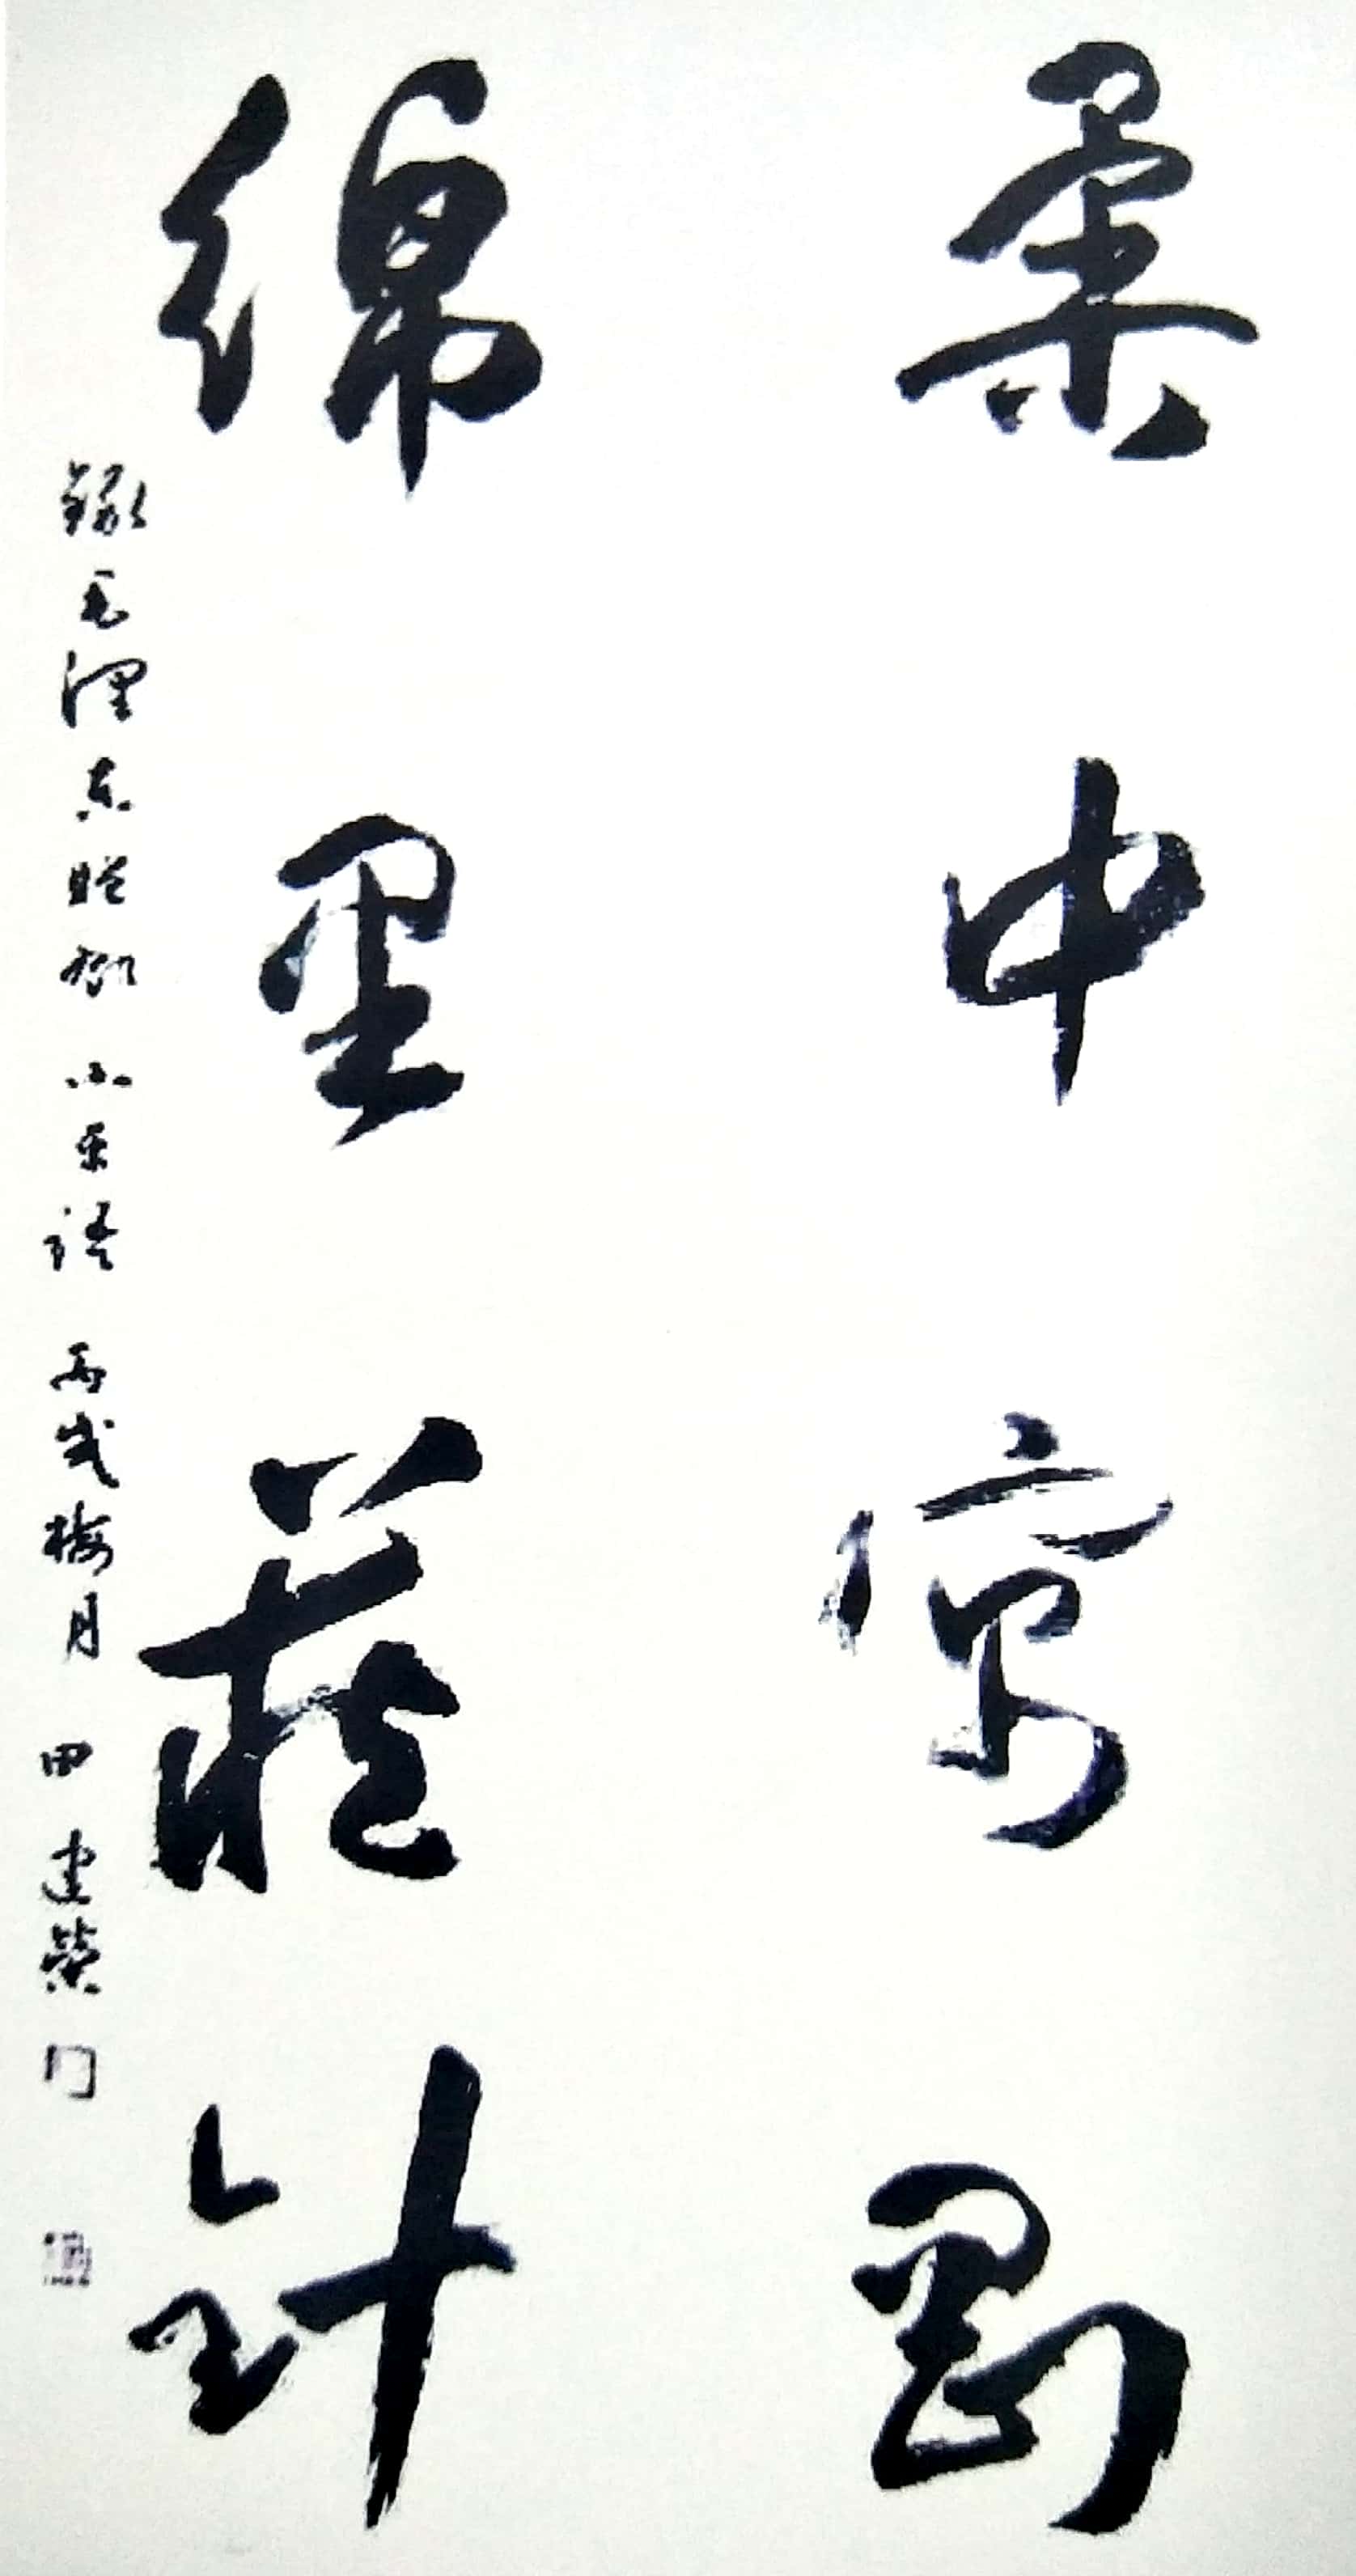 柔中寓剛
綿里藏針
錄毛澤東贈鄧小平語 丙戌梅月 田建榮